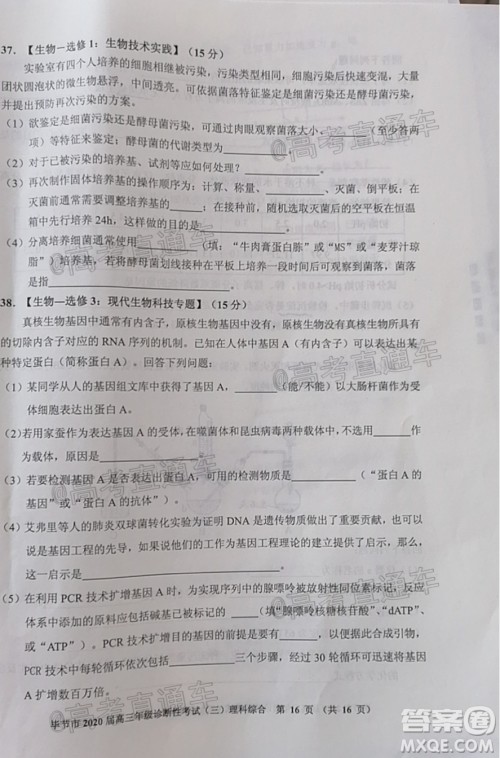 37. 【生物一选修1：生物技术实践】（15分）
实验室有四个人培养的细胞相继被污染，污染类型有：污染后细胞快速变混，大量
团状圆泡状的微生物悬浮，请依据菌落污染和细胞污染的情况，分析出污染物种类
并提出预防再次污染的方案。
（1）欲鉴定是细菌污染还是酵母菌污染，可以通过肉眼观察菌落大小、（至少答两
项）等特征；酵母菌的代谢类型为
（2）对于已被污染的培养基、试剂等应如何处理？
（3）再次制作固体培养基的流程为：计算、称量、、灭菌、倒平板；在灭菌
前通常需要；在接种前，随机选取灭菌后的空平板在恒温
箱中培养24h，这样做的目的是
（4）分离培养细菌通常使用（填：“牛肉膏蛋白胨”或“MS”或“麦芽汁琼
脂”）培养基，将酵母菌划线接种在平板上培养一段时间后，可观察到菌落
38. 【生物一选修3：现代生物科技专题】（15分）
真核生物基因中通常有内含子，原核生物基因中没有，原核生物没有真核生物所具有
的切除内含子对应的 RNA 序列的机制。已知在人体中基因 A（有内含子）可以表达出某
种特定蛋白（简称蛋白 A）。
（1）某同学从人的基因组文库中获得了基因 A，（能/不能）以大肠杆菌作为受
体细胞表达出蛋白 A。
（2）若用家蚕作为表达基因 A 的受体，在噬菌体和昆虫病毒两种载体中，不选用作
为载体，原因是
（3）若要检测基因 A 是否翻译出蛋白 A，可用的检测物质是（填“蛋白 A 的
基因”或“蛋白 A 的抗体”）。
（4）艾弗里等人的肺炎双球菌转化实验为证明 DNA 是遗传物质做出了重要贡献，也可以说
是基因工程的先导，如果说他们的工作为基因工程理论的建立提供了启示，那么，这一
启示是
（5）在利用 PCR 技术扩增基因 A 时，为实现序列中的腺嘌呤被放射性同位素标记，扩增体系
中添加的原料应包括碱基已被标记的（填“腺嘌呤核糖核苷酸”、“dATP”、或
“ATP”）。利用 PCR 技术扩增目的基因的前提是，以便据此合成引物，
PCR 技术中每轮循环依次包括三个步骤，经过 30 轮循环可把目的基因
扩增百万倍。
毕节市 2020 届高三年级诊断性考试（三）理科综合 第 16 页 （共 16 页）
@高考直通车
@高考直通车
@高考直通车
@高考直通车